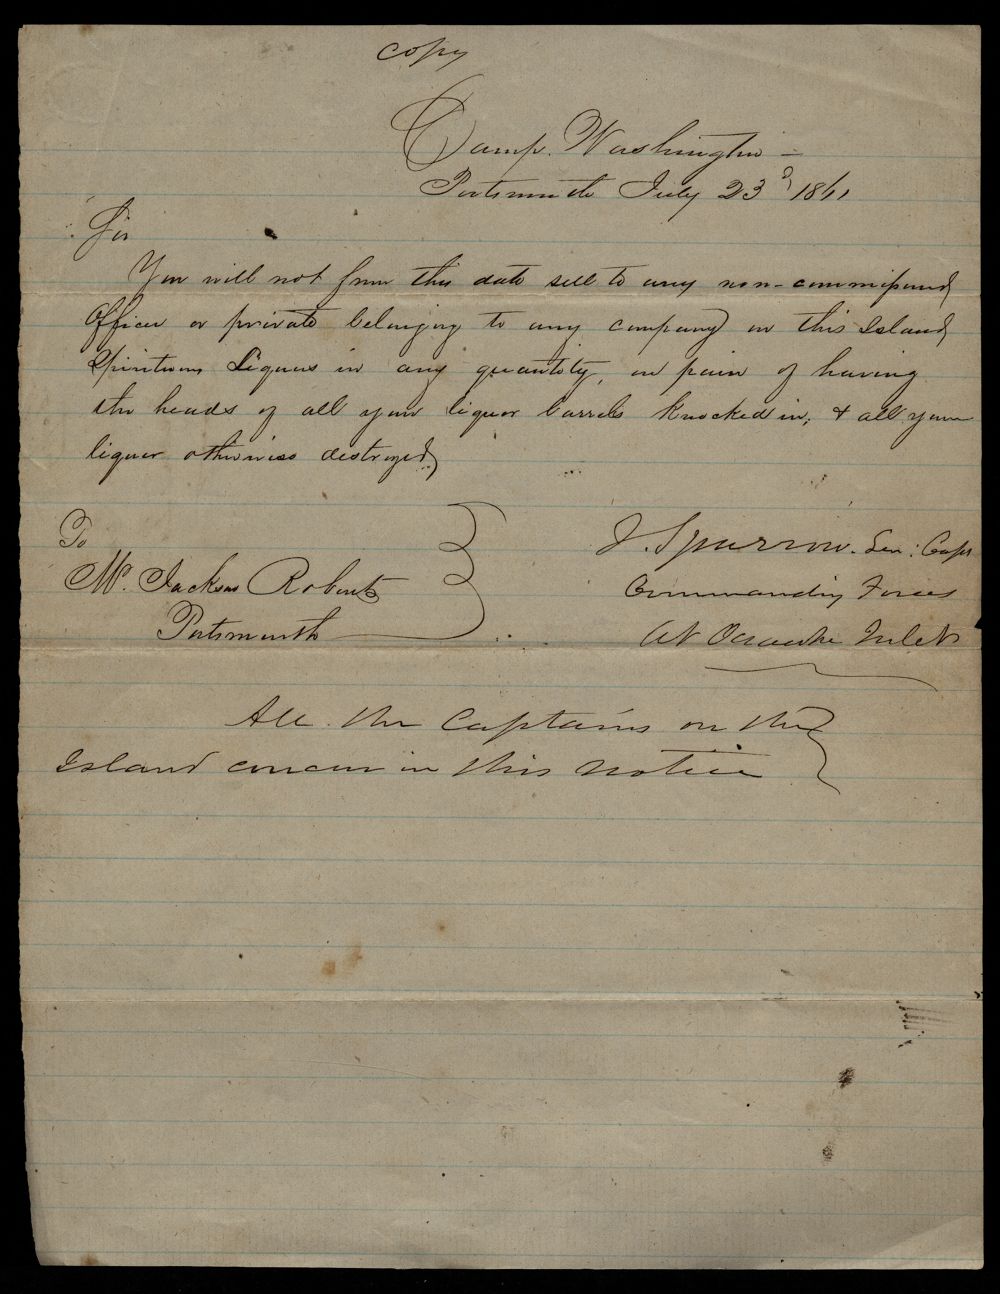 copy
Camp. Washington -
Portsmouth July 23d 1861
Sir
You will not from this date sell to any non-commissioned
Officer or private belonging to any company on this Island
Spirituous Liquors in any quantity, on pain of having
the heads of all your liquor barrels knocked in; & all your
liquor otherwise destroyed,
To
Mr. Jackson Roberts
Portsmouth
J. Sparrow. Sen: Capt
Commanding Forces
At Ocracoke Inlet
All the Captains on the
Island concur in this notice